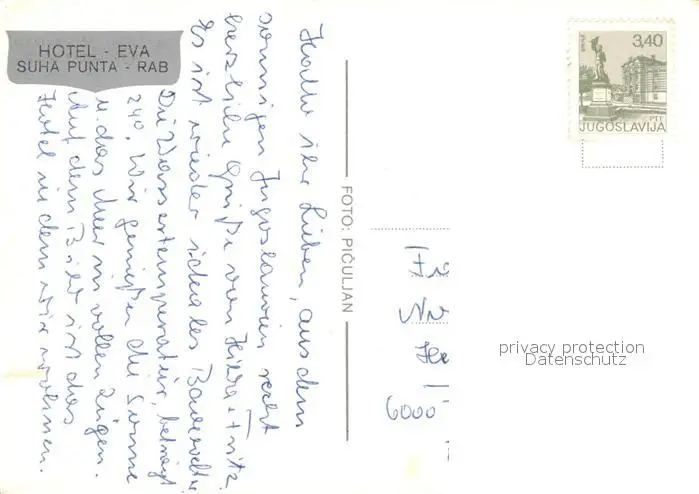 HOTEL - EVA
SUHA PUNTA - RAB
Hallo ihr Lieben, aus dem
sonnigen Jugoslawien recht
herzliche Grüße von Hilda + Fritz.
Es ist wieder ideales Badewetter
Die Wassertemperatur, beträgt
24°. Wir genießen die Sonne
u. das Meer in vollen Zügen.
Auf dem Bild ist das
Hotel in dem wir wohnen.
FOTO: PIČULJAN
3,40
PTT
JUGOSLAVIJA
6000
privacy protection
Datenschutz